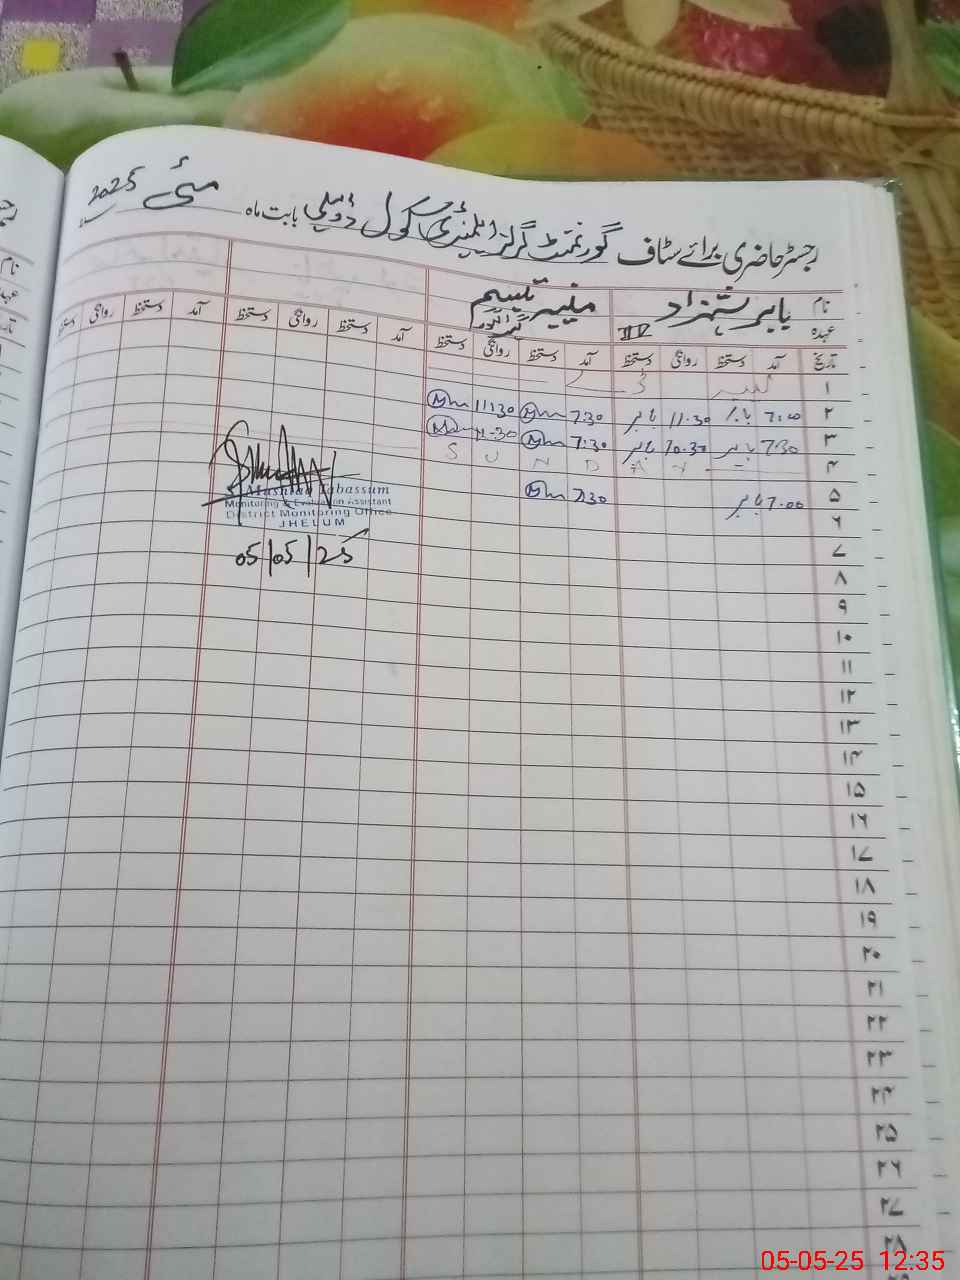 رجسٹر حاضری برائے سٹاف گورنمنٹ گرلز ایلمنٹری سکول ڈومیلی بابت ماہ مئی 2025
نام بابر شہزاد منیر
عہدہ IV
تاریخ آمد دستخط روانگی دستخط آمد دستخط روانگی دستخط آمد دستخط روانگی دستخط آمد دستخط روانگی دستخط
۱
۲ 7:00 بابر 11:30 بابر 7:30 11:30
۳ 7:30 بابر 10:30 بابر 7:30 11:30
۴ S U N D A Y
۵ 7:00 بابر 7:30
Mushtaq Tabassum
Monitoring & Evaluation Assistant
District Monitoring Office
JHELUM
05/05/25
۶
۷
۸
۹
۱۰
۱۱
۱۲
۱۳
۱۴
۱۵
۱۶
۱۷
۱۸
۱۹
۲۰
۲۱
۲۲
۲۳
۲۴
۲۵
۲۶
۲۷
۲۸
05-05-25 12:35